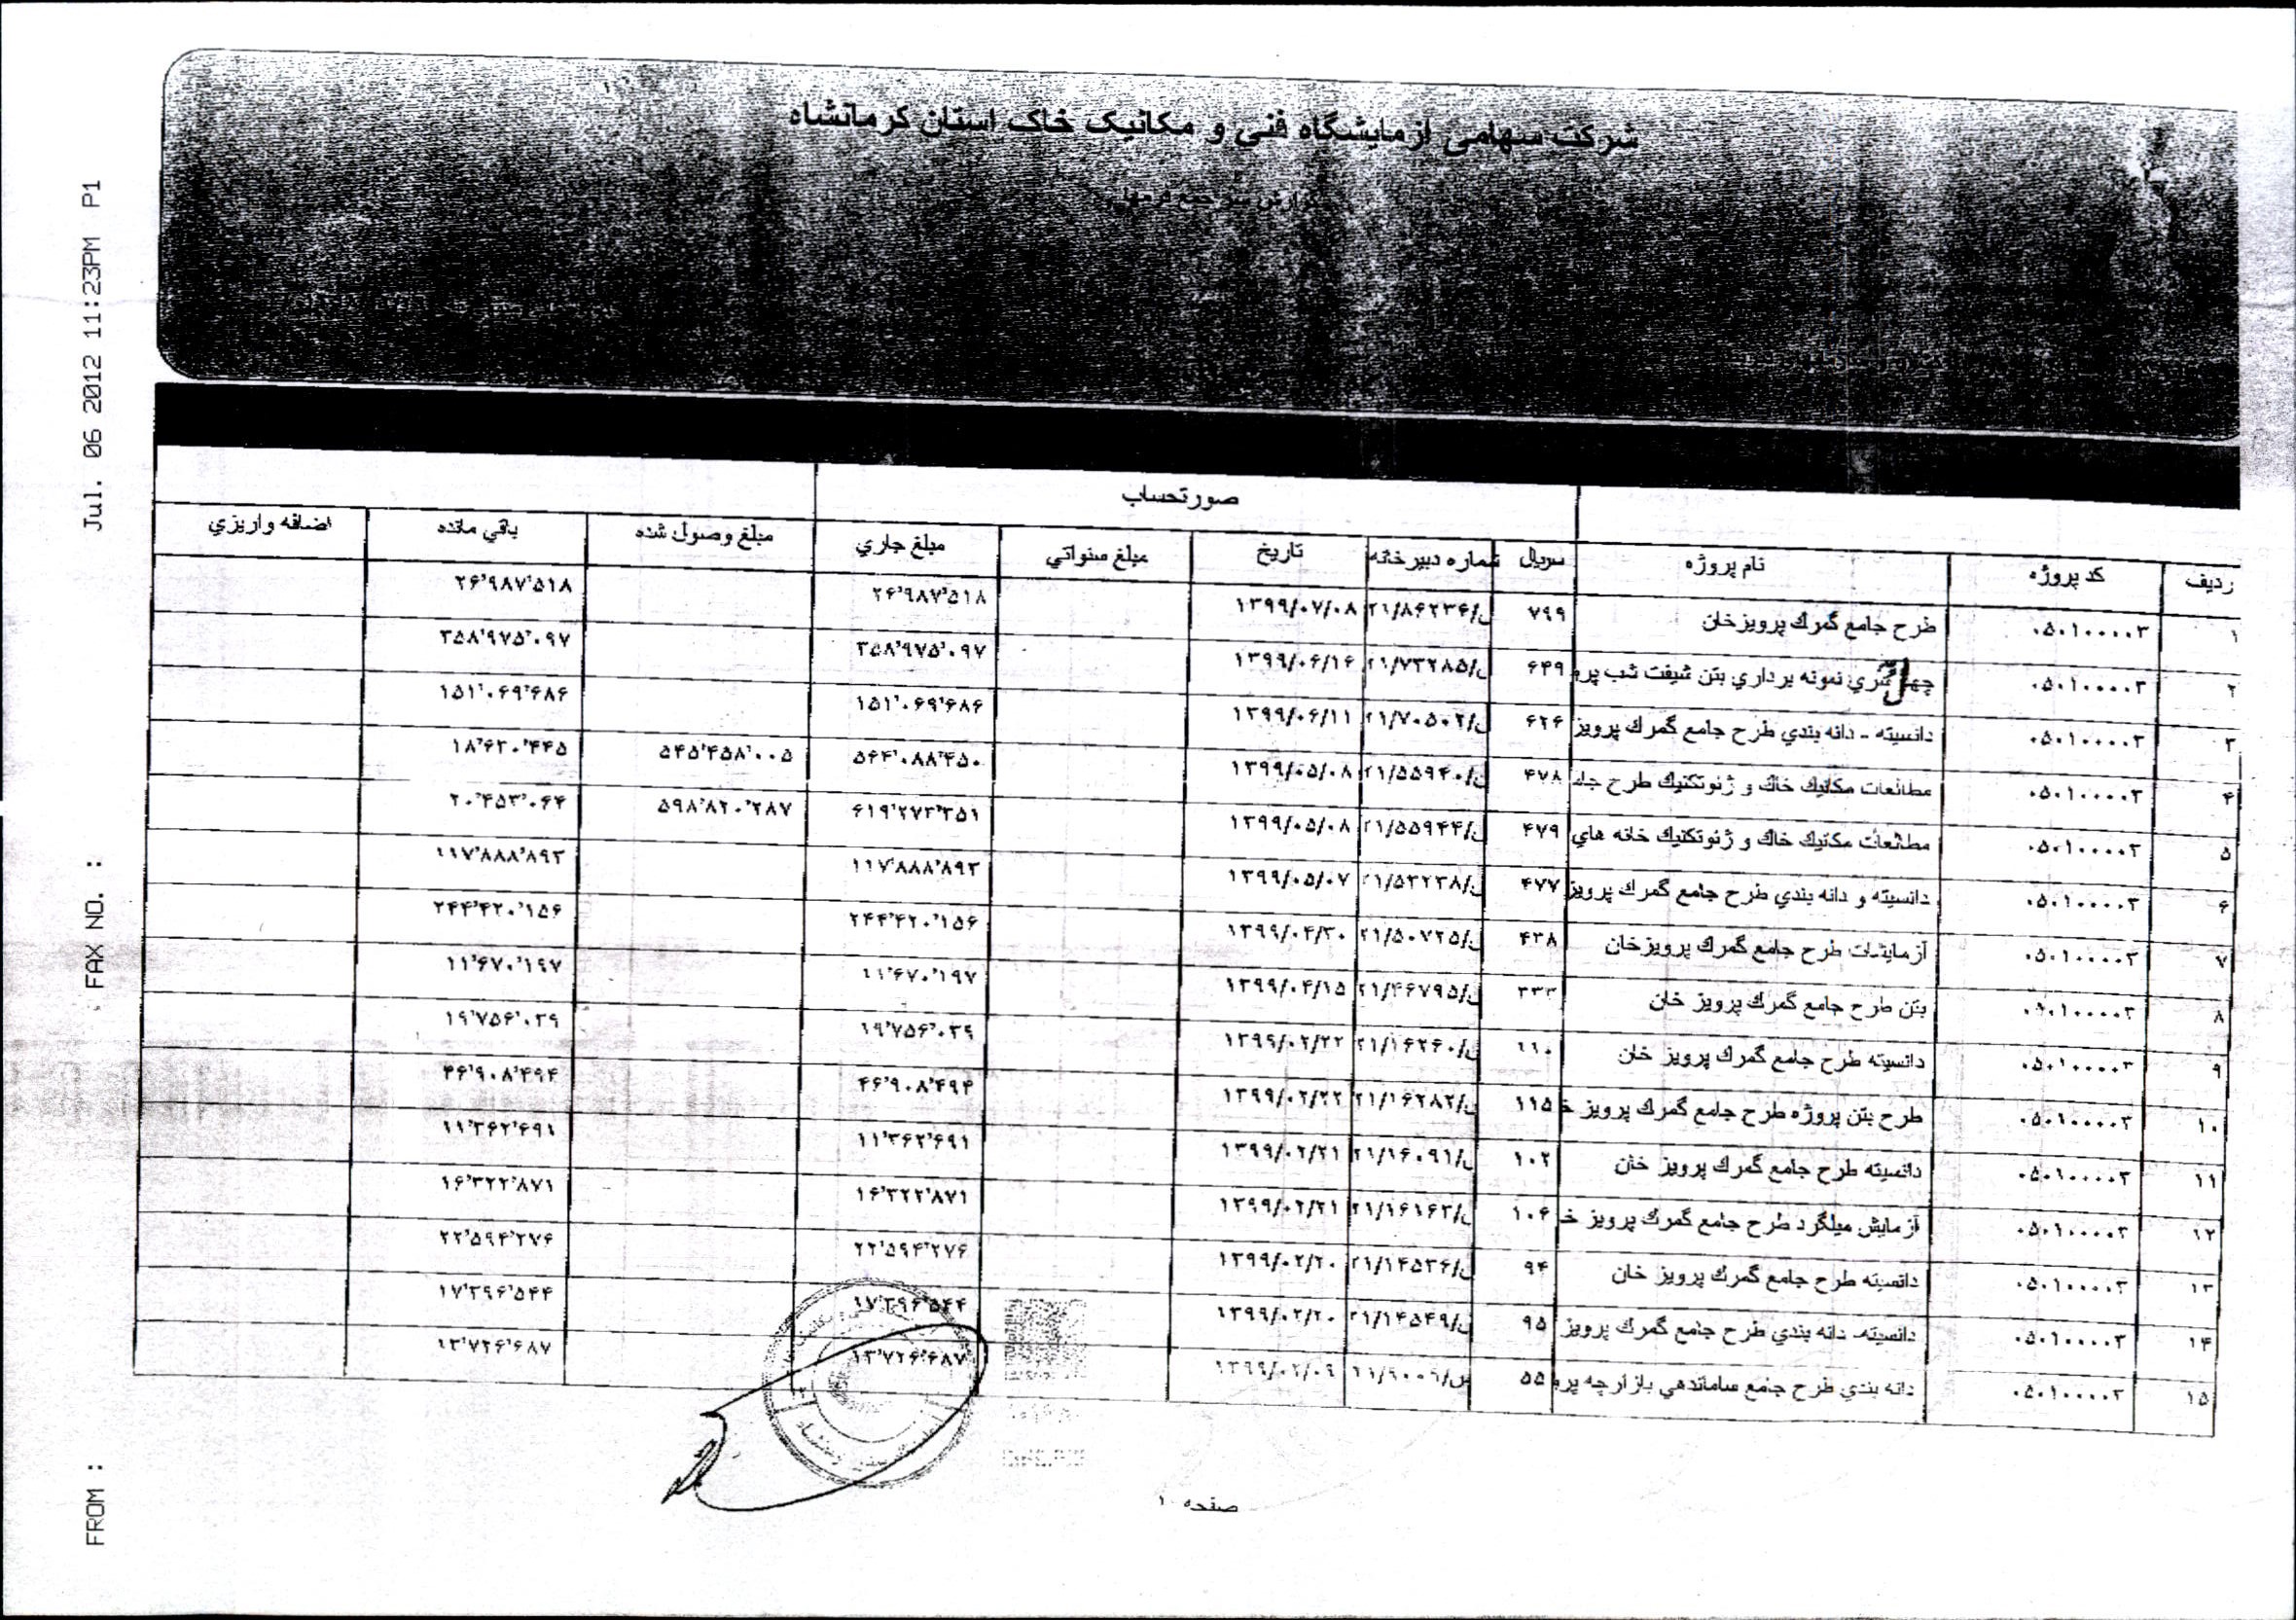 شرکت سهامی ازمایشگاه فنی و مکانیک خاک استان کرمانشاه
Jul. 06 2012 11:23PM P1
FAX NO. :
FROM :
صورتحساب
ردیف کد پروژه نام پروژه سریال شماره دبیرخانه تاریخ مبلغ سنواتي مبلغ جاري مبلغ وصول شده باقي مانده اضافه واریزي
۱ ۰۵۰۱۰۰۰۰۰۳ طرح جامع گمرك پرویزخان ۷۹۹ ۲۱/۸۶۲۳۶/ل ۱۳۹۹/۰۷/۰۸ ۲۶٬۹۸۷٬۵۱۸ ۲۶٬۹۸۷٬۵۱۸
۲ ۰۵۰۱۰۰۰۰۰۳ نمونه برداري بتن شیفت شب ۶۴۹ ۲۱/۷۳۲۸۵/ل ۱۳۹۹/۰۶/۱۶ ۳۵۸٬۹۷۵٬۰۹۷ ۳۵۸٬۹۷۵٬۰۹۷
۳ ۰۵۰۱۰۰۰۰۰۳ دانسیته - دانه بندي طرح جامع گمرك پرویز ۶۲۶ ۲۱/۷۰۵۰۲/ل ۱۳۹۹/۰۶/۱۱ ۱۵۱٬۰۶۹٬۶۸۶ ۱۵۱٬۰۶۹٬۶۸۶
۴ ۰۵۰۱۰۰۰۰۰۳ مطالعات مکانیك خاك و ژئوتکنیك طرح جا ۴۷۸ ۲۱/۵۵۹۴۰/ل ۱۳۹۹/۰۵/۰۸ ۵۶۴٬۰۸۸٬۴۵۰ ۵۴۵٬۴۵۸٬۰۰۵ ۱۸٬۶۳۰٬۴۴۵
۵ ۰۵۰۱۰۰۰۰۰۳ مطالعات مکانیك خاك و ژئوتکنیك خانه هاي ۴۷۹ ۲۱/۵۵۹۴۴/ل ۱۳۹۹/۰۵/۰۸ ۶۱۹٬۲۷۳٬۳۵۱ ۵۹۸٬۸۲۰٬۲۸۷ ۲۰٬۴۵۳٬۰۶۴
۶ ۰۵۰۱۰۰۰۰۰۳ دانسیته و دانه بندي طرح جامع گمرك پرویز ۴۷۷ ۲۱/۵۳۲۳۸/ل ۱۳۹۹/۰۵/۰۷ ۱۱۷٬۸۸۸٬۸۹۳ ۱۱۷٬۸۸۸٬۸۹۳
۷ ۰۵۰۱۰۰۰۰۰۳ آزمایشات طرح جامع گمرك پرویزخان ۴۳۸ ۲۱/۵۰۷۲۵/ل ۱۳۹۹/۰۴/۳۰ ۲۴۴٬۴۲۰٬۱۵۶ ۲۴۴٬۴۲۰٬۱۵۶
۸ ۰۵۰۱۰۰۰۰۰۳ بتن طرح جامع گمرك پرویز خان ۳۳۳ ۲۱/۴۶۷۹۵/ل ۱۳۹۹/۰۴/۱۵ ۱۱٬۶۷۰٬۱۹۷ ۱۱٬۶۷۰٬۱۹۷
۹ ۰۵۰۱۰۰۰۰۰۳ دانسیته طرح جامع گمرك پرویز خان ۱۱۰ ۲۱/۱۶۲۶۰/ل ۱۳۹۹/۰۲/۲۲ ۱۹٬۷۵۶٬۰۳۹ ۱۹٬۷۵۶٬۰۳۹
۱۰ ۰۵۰۱۰۰۰۰۰۳ طرح بتن پروژه طرح جامع گمرك پرویز خ ۱۱۵ ۲۱/۱۶۲۸۲/ل ۱۳۹۹/۰۲/۲۲ ۴۶٬۹۰۸٬۴۹۴ ۴۶٬۹۰۸٬۴۹۴
۱۱ ۰۵۰۱۰۰۰۰۰۳ دانسیته طرح جامع گمرك پرویز خان ۱۰۲ ۲۱/۱۶۰۹۱/ل ۱۳۹۹/۰۲/۲۱ ۱۱٬۳۶۲٬۶۹۱ ۱۱٬۳۶۲٬۶۹۱
۱۲ ۰۵۰۱۰۰۰۰۰۳ آزمایش میلگرد طرح جامع گمرك پرویز خ ۱۰۶ ۲۱/۱۶۱۶۲/ل ۱۳۹۹/۰۲/۲۱ ۱۶٬۳۲۲٬۸۷۱ ۱۶٬۳۲۲٬۸۷۱
۱۳ ۰۵۰۱۰۰۰۰۰۳ دانسیته طرح جامع گمرك پرویز خان ۹۴ ۲۱/۱۴۵۳۶/ل ۱۳۹۹/۰۲/۲۰ ۲۲٬۵۹۴٬۲۷۶ ۲۲٬۵۹۴٬۲۷۶
۱۴ ۰۵۰۱۰۰۰۰۰۳ دانسیته- دانه بندي طرح جامع گمرك پرویز ۹۵ ۲۱/۱۴۵۴۹/ل ۱۳۹۹/۰۲/۲۰ ۱۷٬۳۹۶٬۵۴۴ ۱۷٬۳۹۶٬۵۴۴
۱۵ ۰۵۰۱۰۰۰۰۰۳ دانه بندي طرح جامع ساماندهي بازارچه پرو ۵۵ ۱۳۹۹/۰۲/۰۹ ۱۳٬۷۲۶٬۶۸۷ ۱۳٬۷۲۶٬۶۸۷
صفحه ۱۰